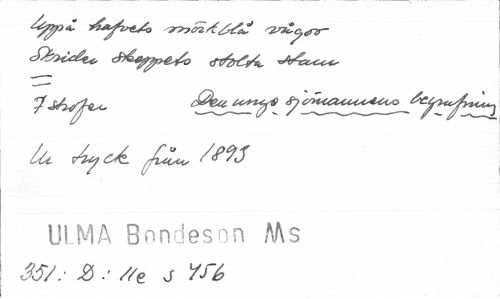 Uppå hafvets mörkblå vågor
Skrider skeppets stolta stam
7 strofer Den unge sjömannens begrafning
Ur tryck från 1893
ULMA Bondeson Ms
351: D: 11e s 456